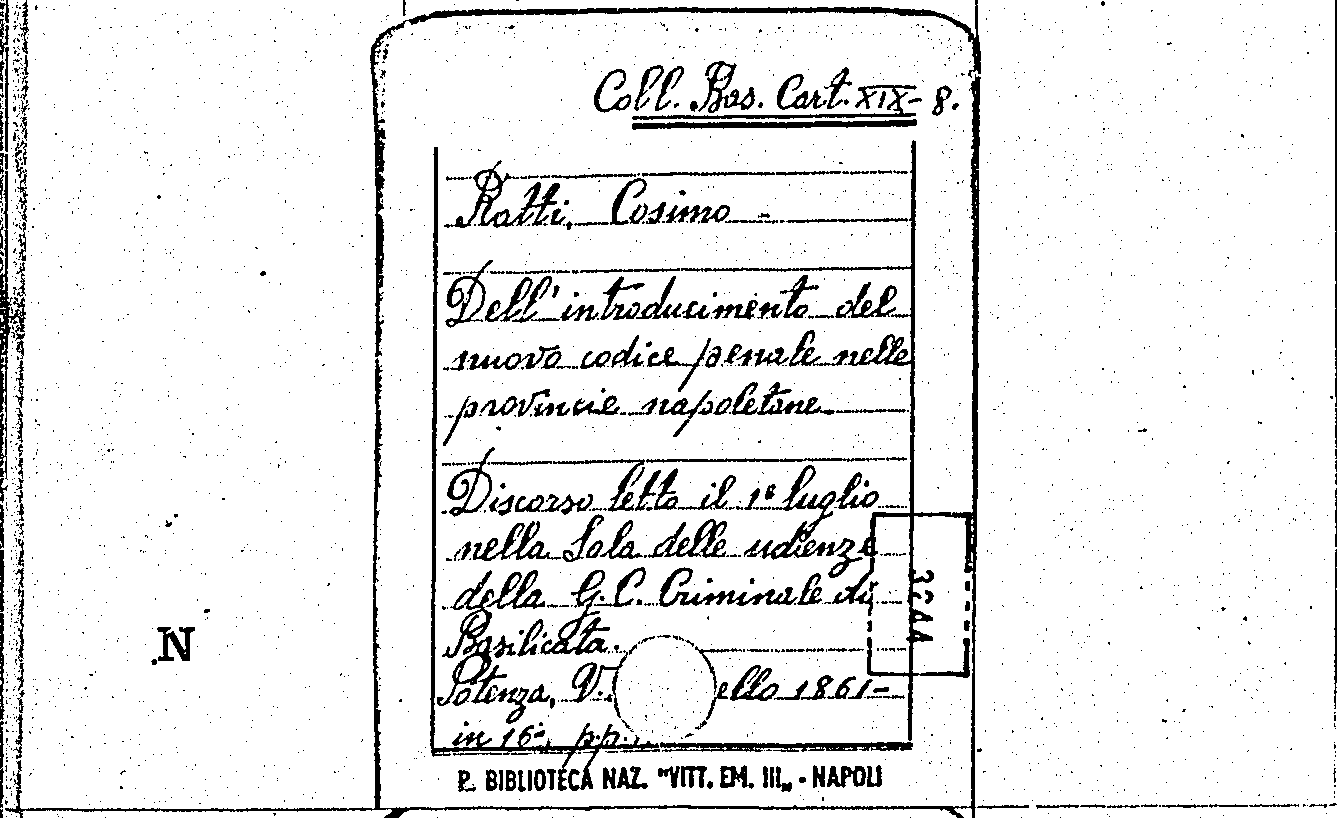 Coll. Bas. Cart. XIX - 8.
Ratti, Cosimo -
Dell'introducimento del
nuovo codice penale nelle
provincie napoletane.
Discorso letto il 1º luglio
nella Sala delle udienze
della G. C. Criminale di
Basilicata.
Potenza, V. ello 1861-
in 16º, pp.
R. BIBLIOTECA NAZ. "VITT. EM. III„ - NAPOLI
N